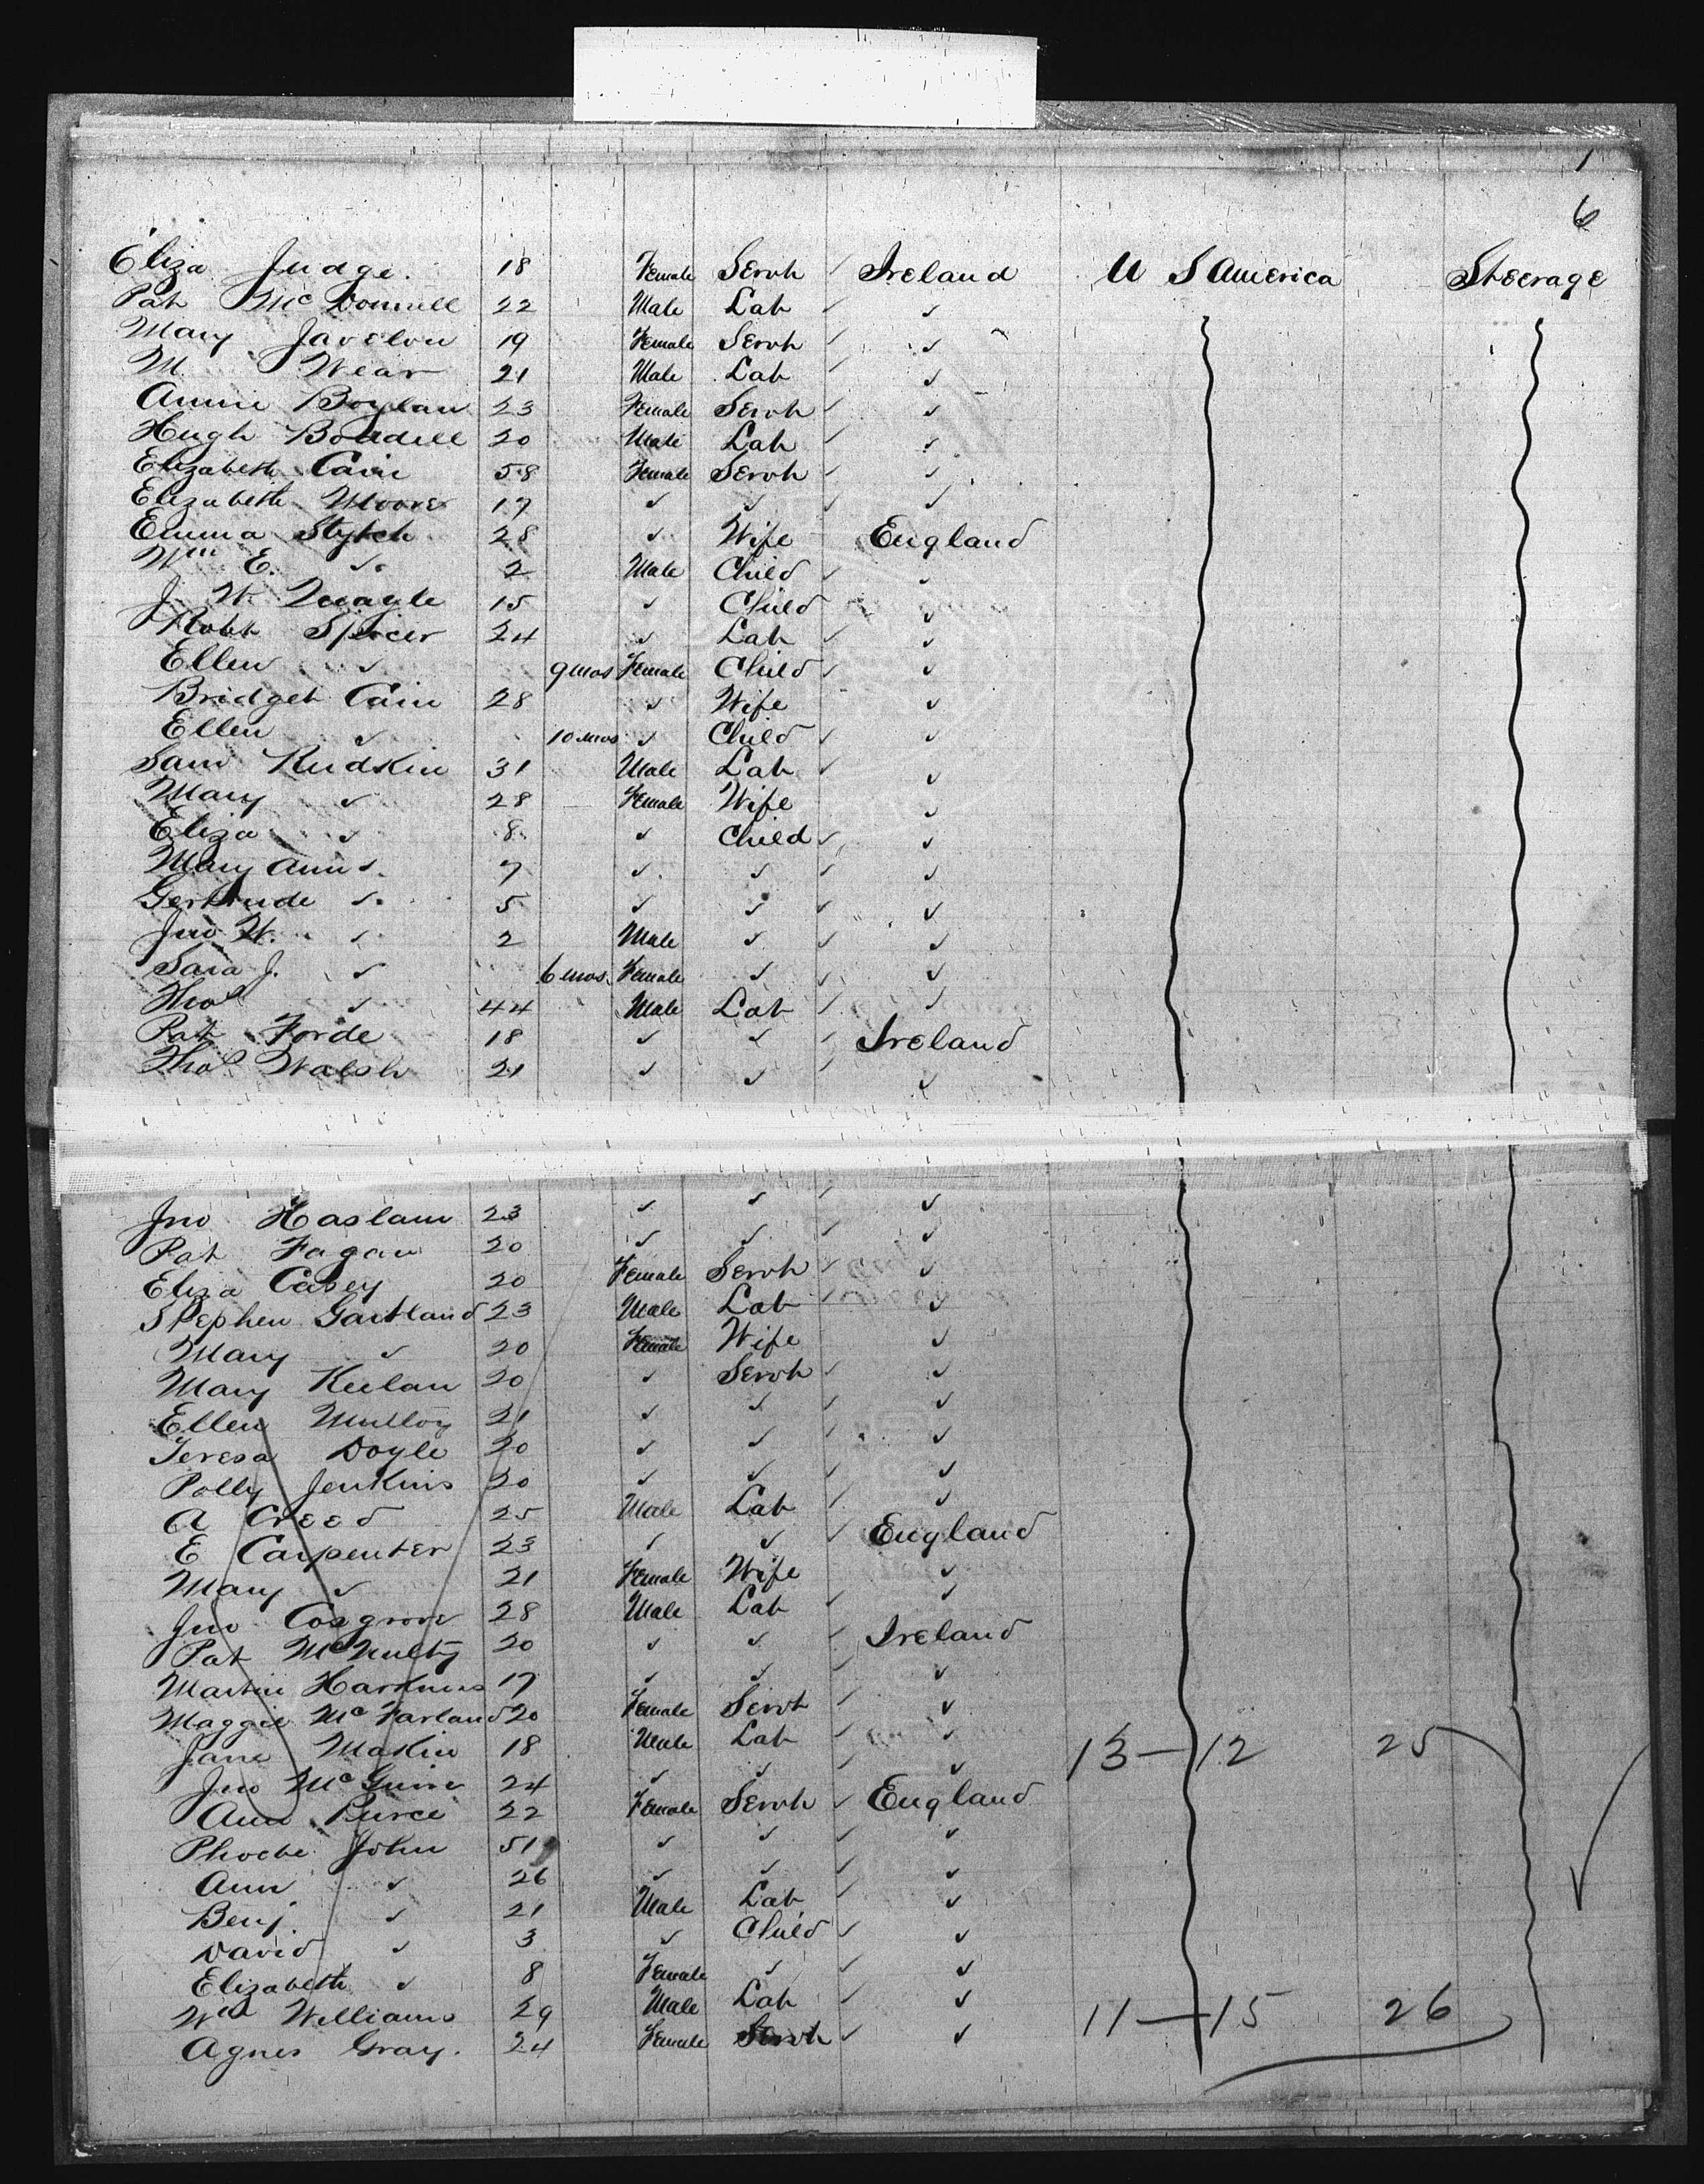 1
6
Eliza Judge. 18 Female Servt ✓ Ireland U S America Steerage
Pat McDonnell 22 Male Lab ✓ ✓
Mary 19 Female Servt ✓ ✓
M. Wear 21 Male Lab ✓ ✓
Annie Boylan 23 Female Servt ✓ ✓
Hugh 20 Male Lab ✓ ✓
Elizabeth Cain 58 Female Servt ✓ ✓
Elizabeth Moore 17 ✓ ✓ ✓ ✓
Emma Stytch 28 ✓ Wife England
Wm E. ✓ 2 Male Child ✓ ✓
J. W. Quayle 15 ✓ Child ✓
Robt Spicer 24 ✓ Lab ✓ ✓
Ellen ✓ 9 mos Female Child ✓ ✓
Bridget Cain 28 ✓ Wife ✓
Ellen ✓ 10 mos ✓ Child ✓ ✓
Sam Rudkin 31 Male Lab ✓ ✓
Mary ✓ 28 Female Wife ✓
Eliza ✓ 8 ✓ Child ✓ ✓
Mary Ann ✓ 7 ✓ ✓ ✓ ✓
Gertrude ✓ 5 ✓ ✓ ✓ ✓
Jno W. ✓ 2 Male ✓ ✓ ✓
Sara J. ✓ 6 mos. Female ✓ ✓ ✓
Thos ✓ 44 Male Lab ✓ ✓
Pat Forde 18 ✓ ✓ ✓ Ireland
Thos Walsh 21 ✓ ✓ ✓ ✓
Jno Haslam 23 ✓ ✓ ✓ ✓
Pat Fagan 20 ✓ ✓ ✓ ✓
Eliza Casey 20 Female Servt ✓ ✓
Stephen Gartland 23 Male Lab ✓ ✓
Mary ✓ 20 Female Wife ✓
Mary Keelan 20 ✓ Servt ✓ ✓
Ellen Mulloy 21 ✓ ✓ ✓ ✓
Teresa Doyle 20 ✓ ✓ ✓ ✓
Polly Jenkins 20 ✓ ✓ ✓ ✓
A Creed 25 Male Lab ✓ ✓
E Carpenter 23 ✓ ✓ ✓ England
Mary ✓ 21 Female Wife ✓
Jno Cosgrove 28 Male Lab ✓ ✓
Pat McNulty 20 ✓ ✓ ✓ Ireland
Martin Harkness 17 ✓ ✓ ✓ ✓
Maggie McFarland 20 Female Servt ✓ ✓
Jane Makin 18 Male Lab ✓ ✓ 13—12 25
Jno McGuire 24 ✓ ✓ ✓ ✓
Ann Purce 22 Female Servt ✓ England
Phoebe John 51 ✓ ✓ ✓ ✓
Ann ✓ 26 ✓ ✓ ✓ ✓
Benj. ✓ 21 Male Lab ✓ ✓
David ✓ 3 ✓ Child ✓ ✓
Elizabeth ✓ 8 Female ✓ ✓ ✓
Wm Williams 29 Male Lab ✓ ✓ 11—15 26
Agnes Gray. 24 Female Servt ✓ ✓